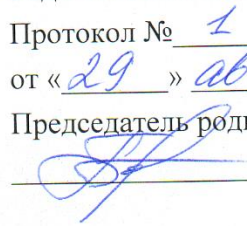 Протокол № 1
от « 29 » ав
Председатель роди